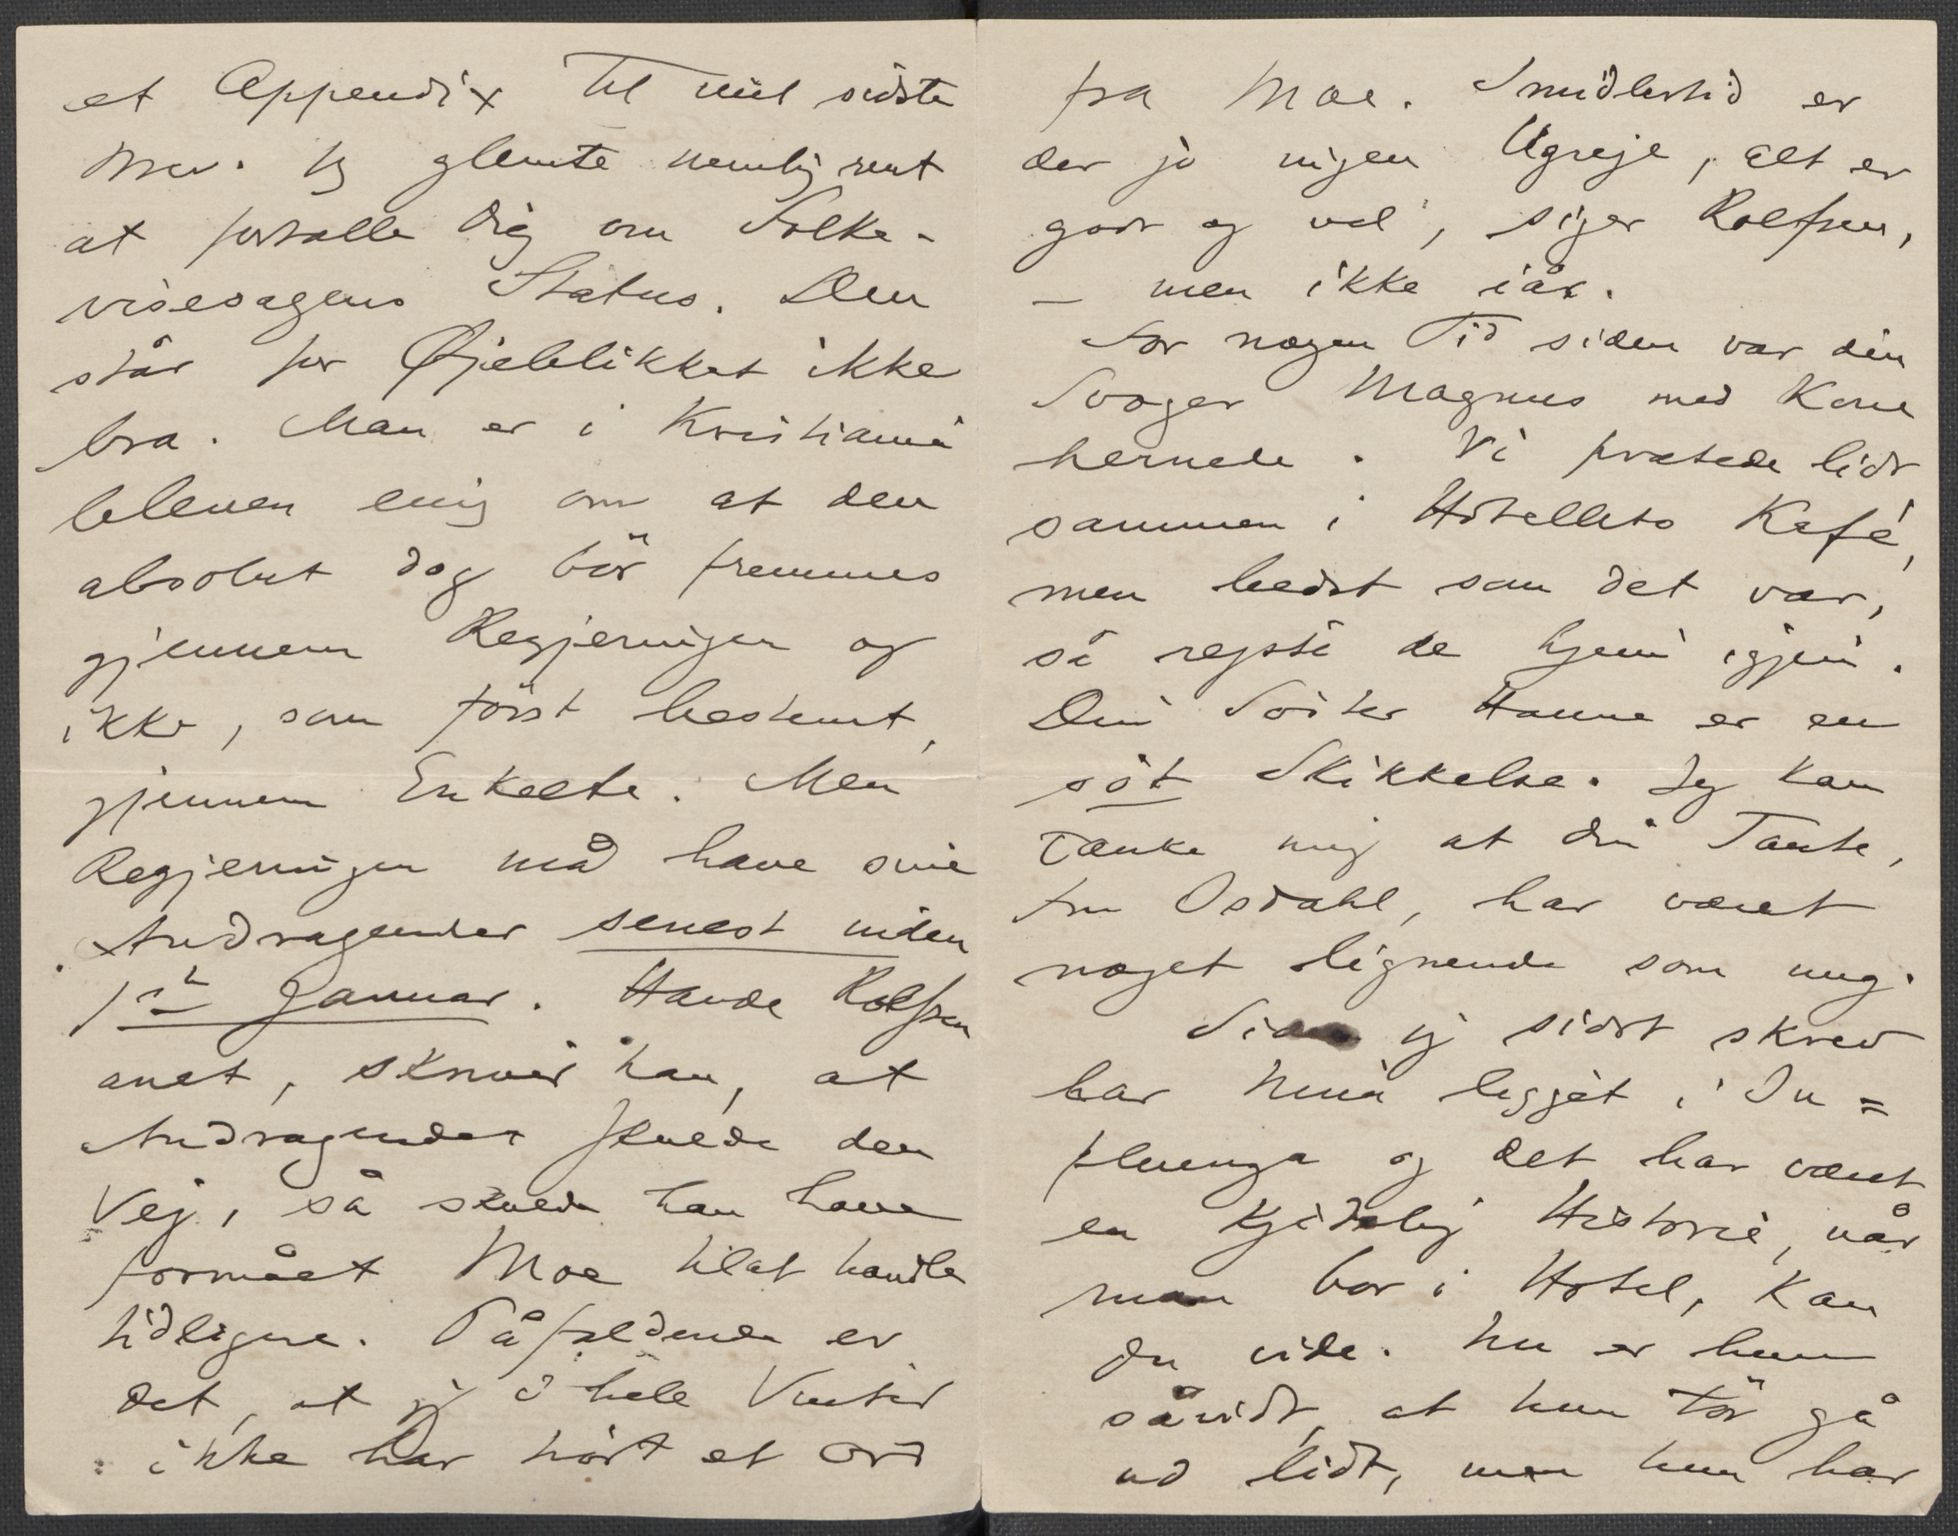 et Appendix til mit sidste
Brev. Jeg glemte nemlig rent
at fortælle Dig om Folke-
visesagens Status. Den
står for Øjeblikket ikke
bra. Man er i Kristiania
bleven enig om at den
absolut dog bör fremmes
gjennem Regjeringen og
ikke, som först bestemt,
gjennem Enkelte. Men
Regjeringen må have sine
Andragender senest inden
1ste Januar. Havde Rolfsen
anet, skriver han, at
Andragendet skulde den
Vej, så skulde han have
formået Moe til at handle
tidligere. Påfaldende er
det, at jeg i hele Vinter
ikke har hört et Ord
fra Moe. Imidlertid er
der jo ingen Ugreje, alt er
godt og vel, siger Rolfsen,
– men ikke iår.
For nogen Tid siden var din
Svoger Magnus med Kone
hernede. Vi pratede lidt
sammen i Hotellets Kafé,
men bedst som det var,
så rejste de hjem igjen.
Din Söster Hanna er en
söt Skikkelse. Jeg kan
tænke mig at din Tante,
fru Osdahl, har været
noget lignende som ung.
Siden jeg sidst skrev
har Nina ligget i In=
fluenza og det har været
en kjedelig Historie, når
man bor i Hotel, kan
du vide. Nu er hun
såvidt, at hun tör gå
ud lidt, men hun har